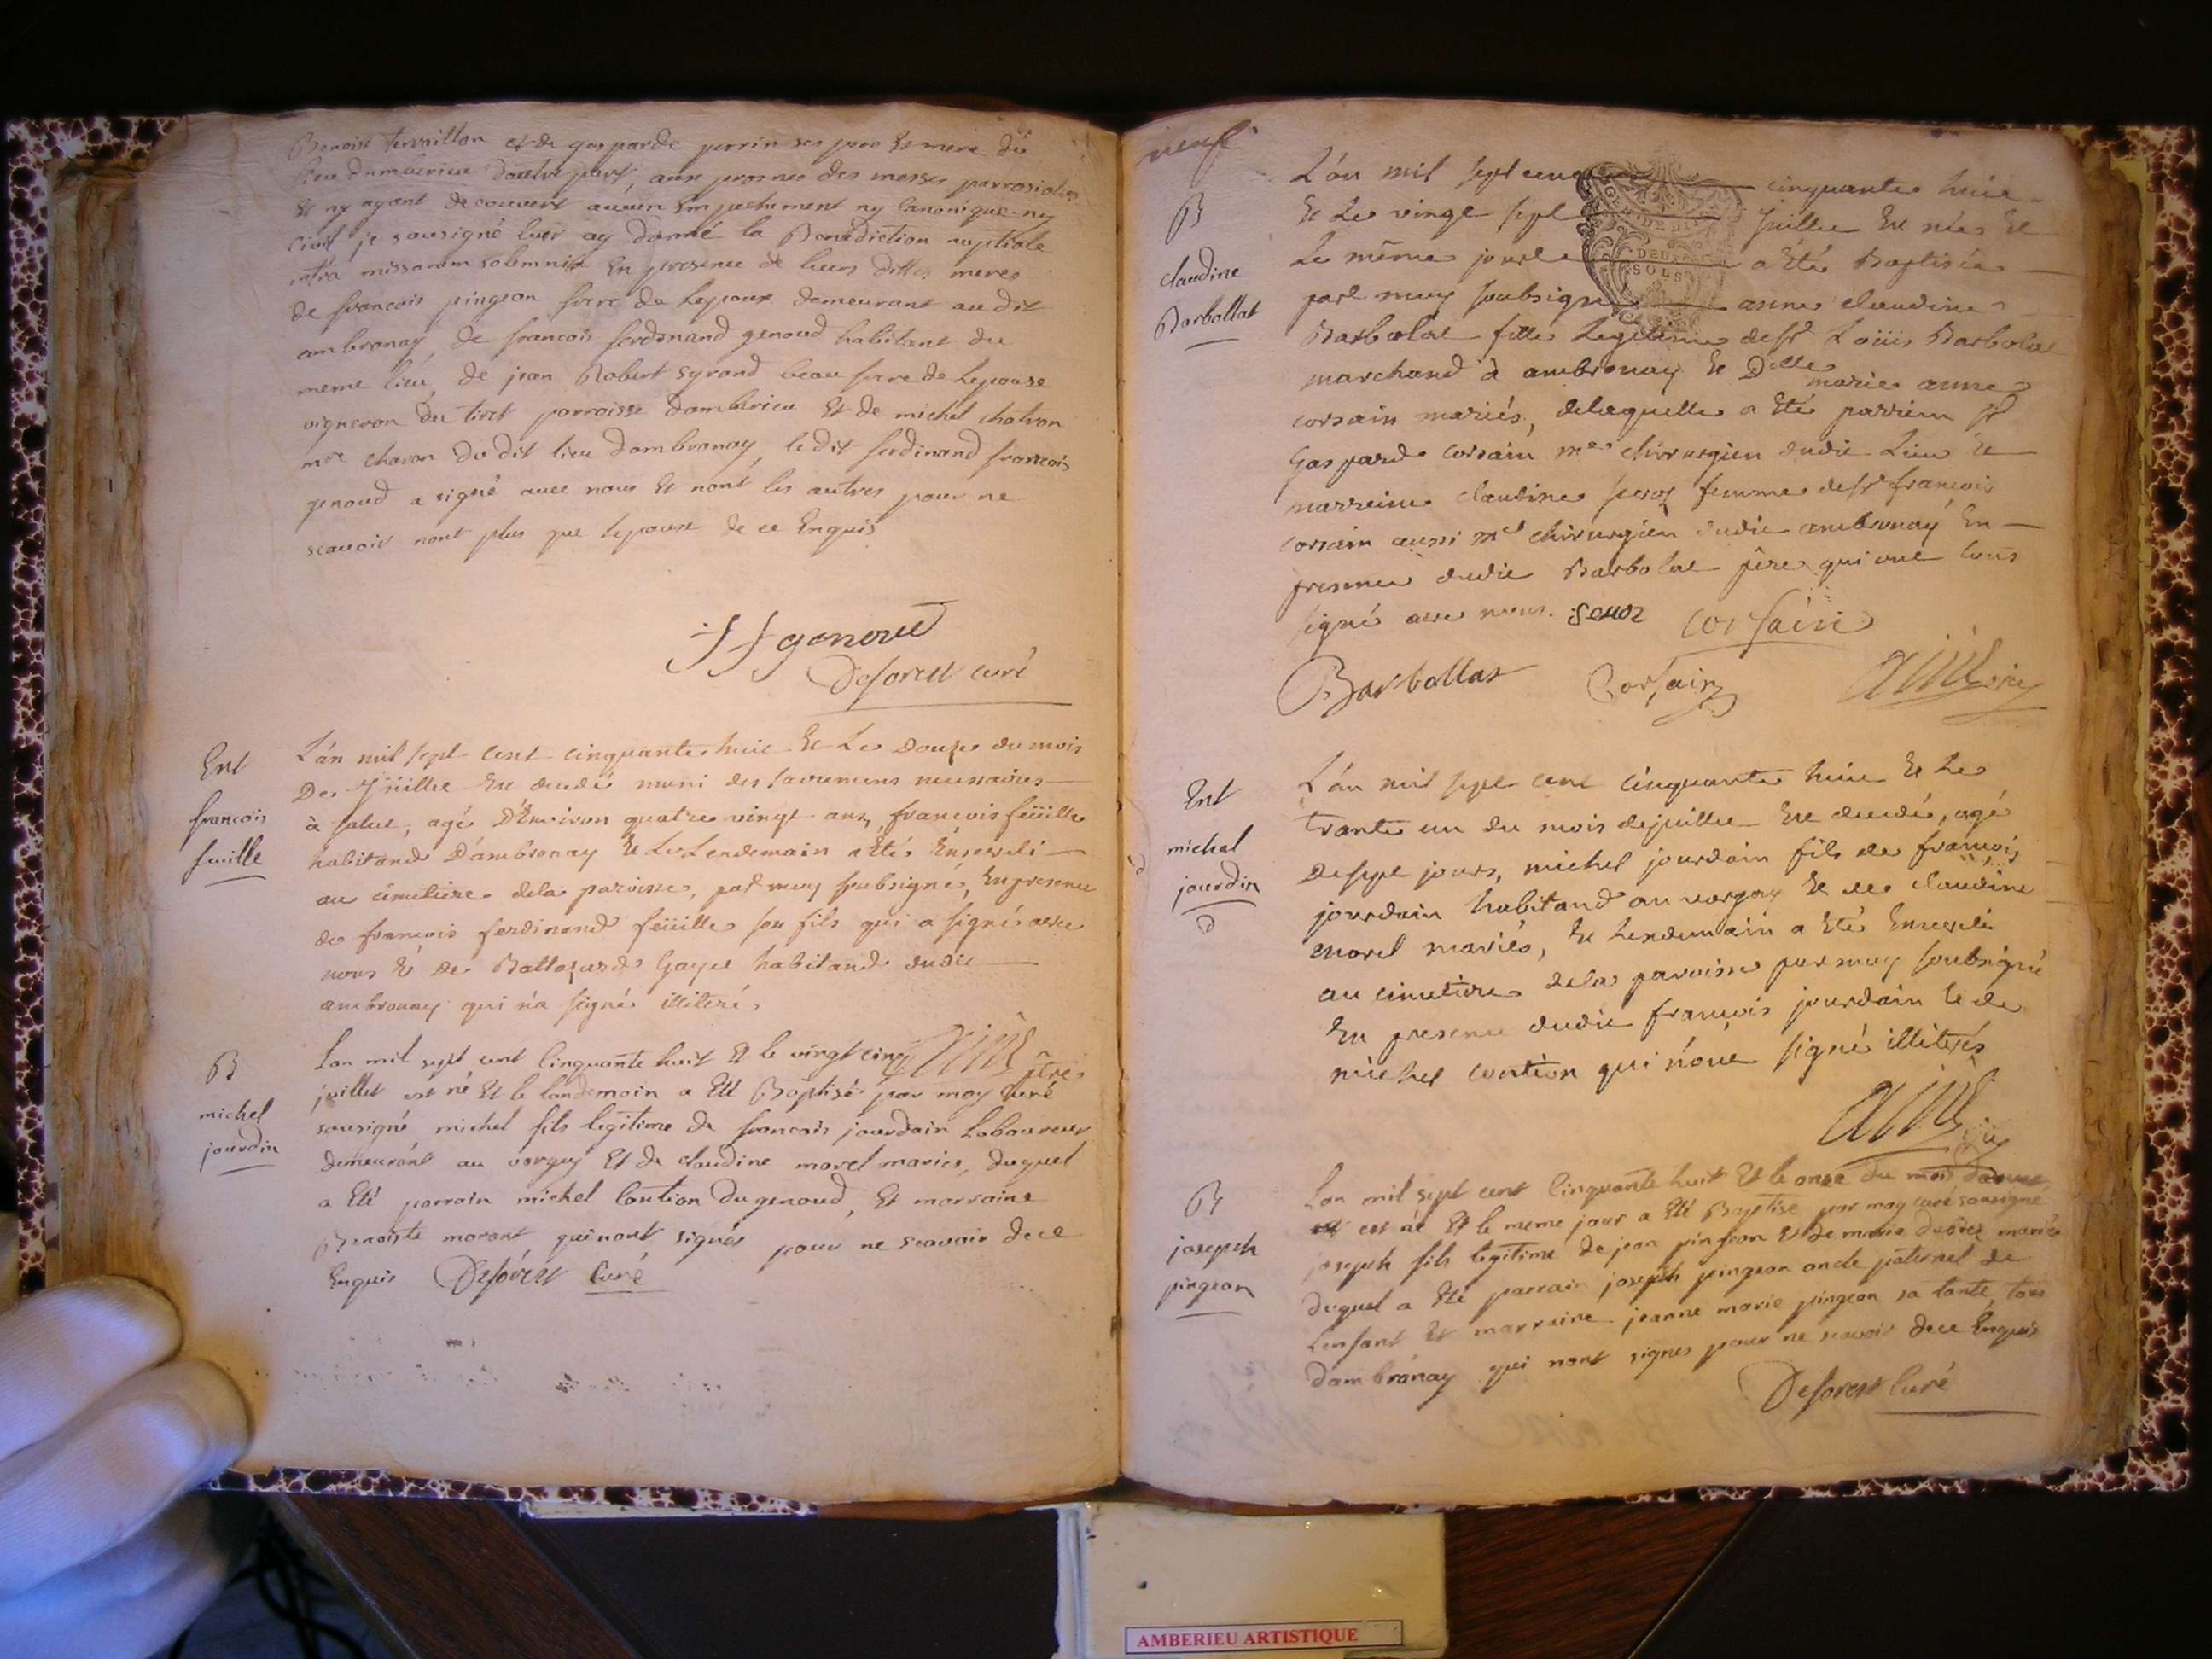 Benoist tervaillon et de gasparde perrin ses pere Et mere du
lieu damberieu d'autre part, aux prosnes des messes parrosiales
Et ny ayant decouvert aucun Empechement ny Canonique ny
Civil, je sousigné Curé ay donné la Benediction nuptiale
intra missarum solemnia En presence de leurs dittes meres
de francois pingeon frere de lepoux demeurant au dit
ambronay, de francois ferdinand genoud habitant du
meme lieu, de jean Robert syrand beau frere de lepouse
vigneron du tiret parroisse damberieu Et de michel chatron
mre charon du dit lieu dambronay, le dit ferdinand francois
genoud a signé avec nous Et nont les autres pour ne
scavoir nont plus que lepouse de ce Enquis
ff genoud
Deforest curé
Ent
francois
feuille
L'an mil sept cent cinquante huit Et Le Douze du mois
De Juillet Est decedé muni des sacremens necessaires
à salut, agé D'Environ quatre vingt ans, francois feüille
habitand D'ambronay Et Le Lendemain a Eté Enseveli
au cimetiere dela paroisse, par moy soubsigné, En presence
de francois ferdinand feüille son fils qui a signé avec
nous Et De Baltazard Gayet habitand dudit
ambronay qui n'a signé illiteré
B
michel
jourdin
Lan mil sept cent Cinquante huit Et le vingt cinq
juillet est né Et le landemain a Eté Baptisé par moy curé
sousigné michel fils legitime de francois jourdain Laboureur
demeurant au vorgey Et de claudine morel mariés, duquel
a Eté parrain michel Coution du genoud, Et marraine
Benoiste morant qui nont signés pour ne scavoir de ce
Enquis Deforest Curé
neuf
B
claudine
Barbollat
L'an mil sept cent cinquante huit
Et Le vingt sept Juillet Est née Et
Le même jour a Eté Baptisée
par moy soubsigné anne claudine
Barbolat fille Legitime de sr Loüis Barbolat
marchand à ambronay Et Delle marie anne
corsain mariés, delaquelle a Eté parrein sr
Gaspard corsain me chirurgien dudit Lieu Et
marreine claudine femme de sr francois
corsain aussi me chirurgien dudit ambronay En
presence dudit Barbolat père qui ont tous
signé avec nous. corsain
Barbollat Corsain
GEN. DE DIJ
DEUX
SOLS
Ent
michel
jourdin
L'an mil sept cent cinquante huit Et Le
trante un du mois dejuillet Est decedé, agé
De sept jours, michel jourdain fils de francois
jourdain habitand au vorgey Et de claudine
morel mariés, Et Lendemain a Eté Enseveli
au cimetiere dela paroisse par moy soubsigné
En presence dudit francois jourdain Et de
michel coution qui n'ont signé illiterés
B
joseph
pingeon
Lan mil sept cent Cinquante huit Et le onze du mois daoust
est né Et le meme jour a Eté Baptisé par moy curé sousigné
joseph fils legitime de jean pingeon Et de marie mariés
duquel a Eté parrain joseph pingeon oncle paternel de
Lenfant Et marraine jeanne marie pingeon sa tante, tous
dambronay qui nont signés pour ne scavoir de ce Enquis
Deforest Curé
AMBERIEU ARTISTIQUE